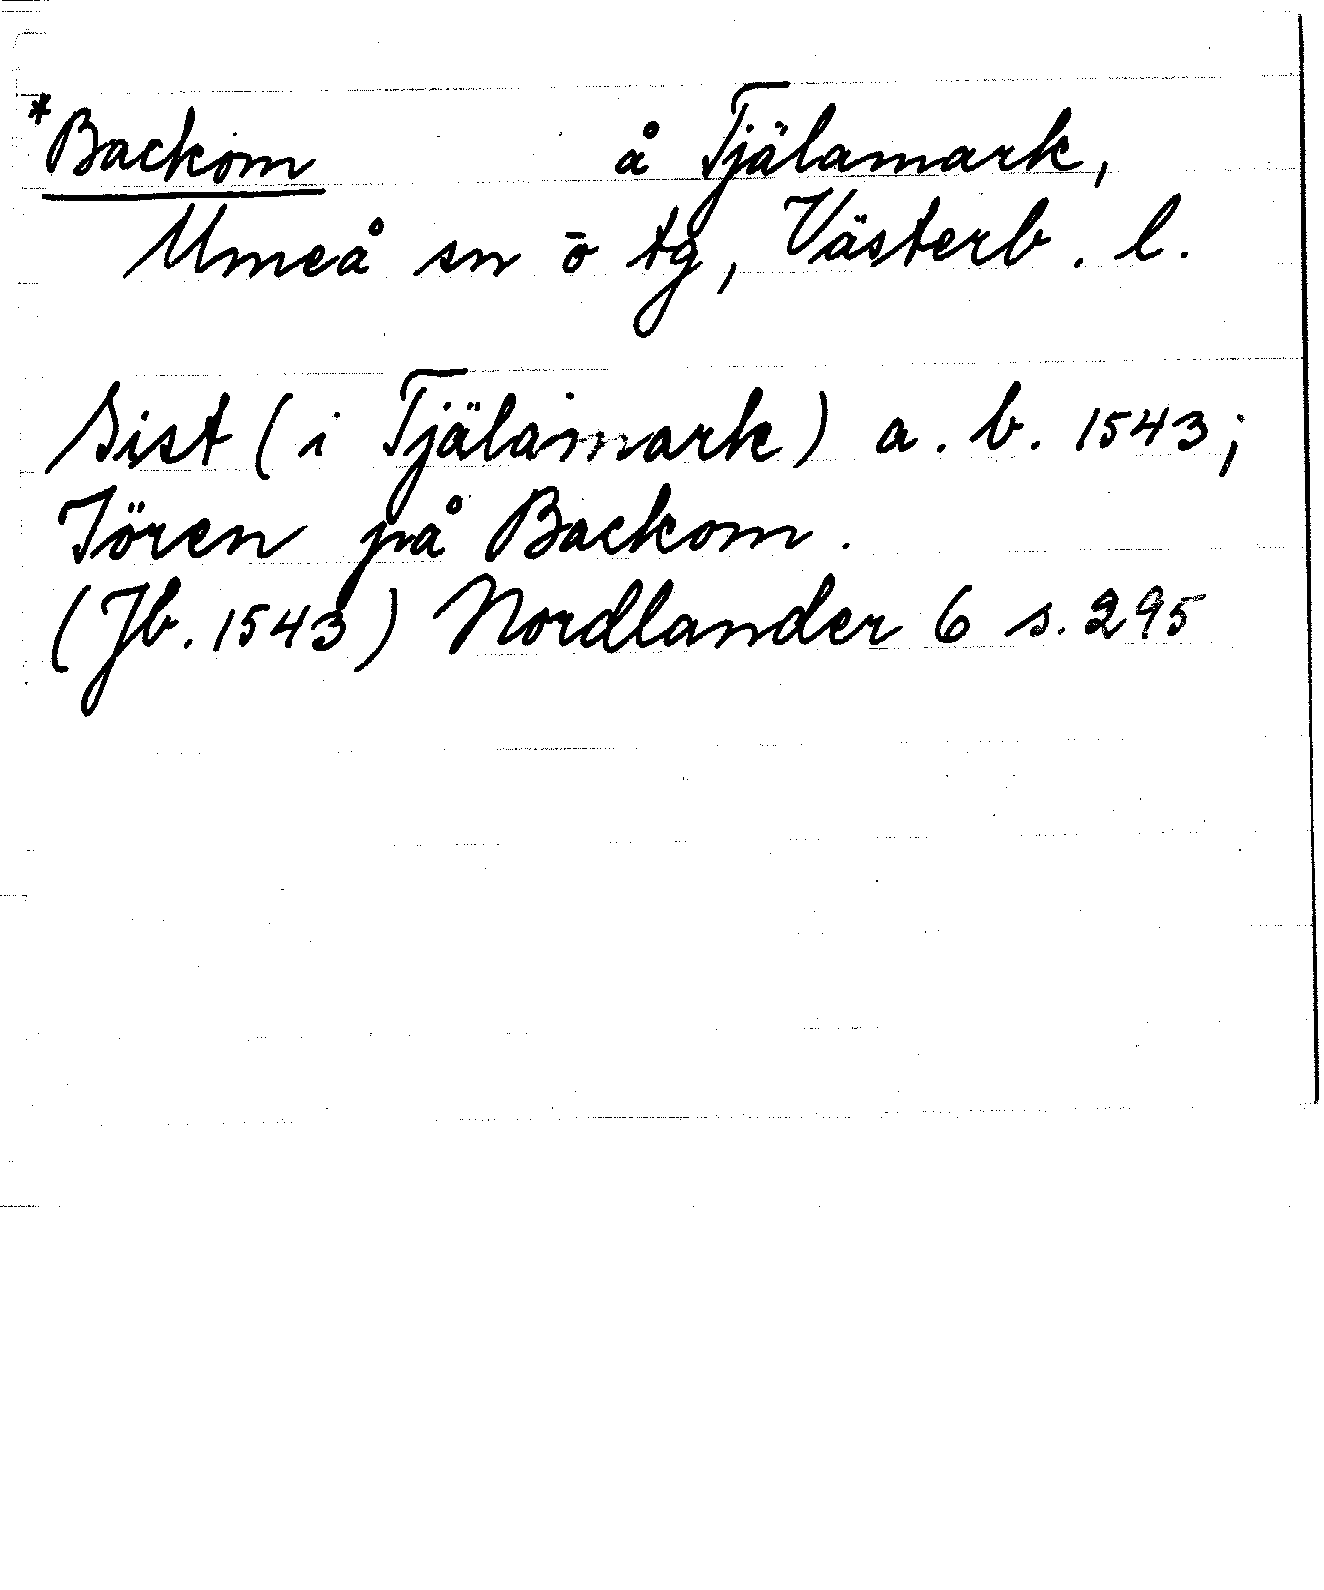 *Backom å Tjälamark,
Umeå sn o tg, Västerb. l.
Sist (i Tjälamark) a. b. 1543;
Jören på Backom.
(Jb. 1543) Nordlander 6 s. 295